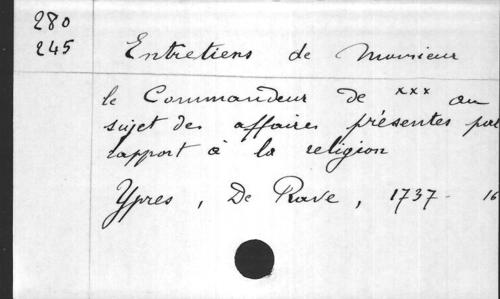 280
245
Entretiens de Monsieur
le Commandeur de xxx au
sujet des affaires présentes par
rapport à la religion
Ypres, De Rave, 1737 - 16